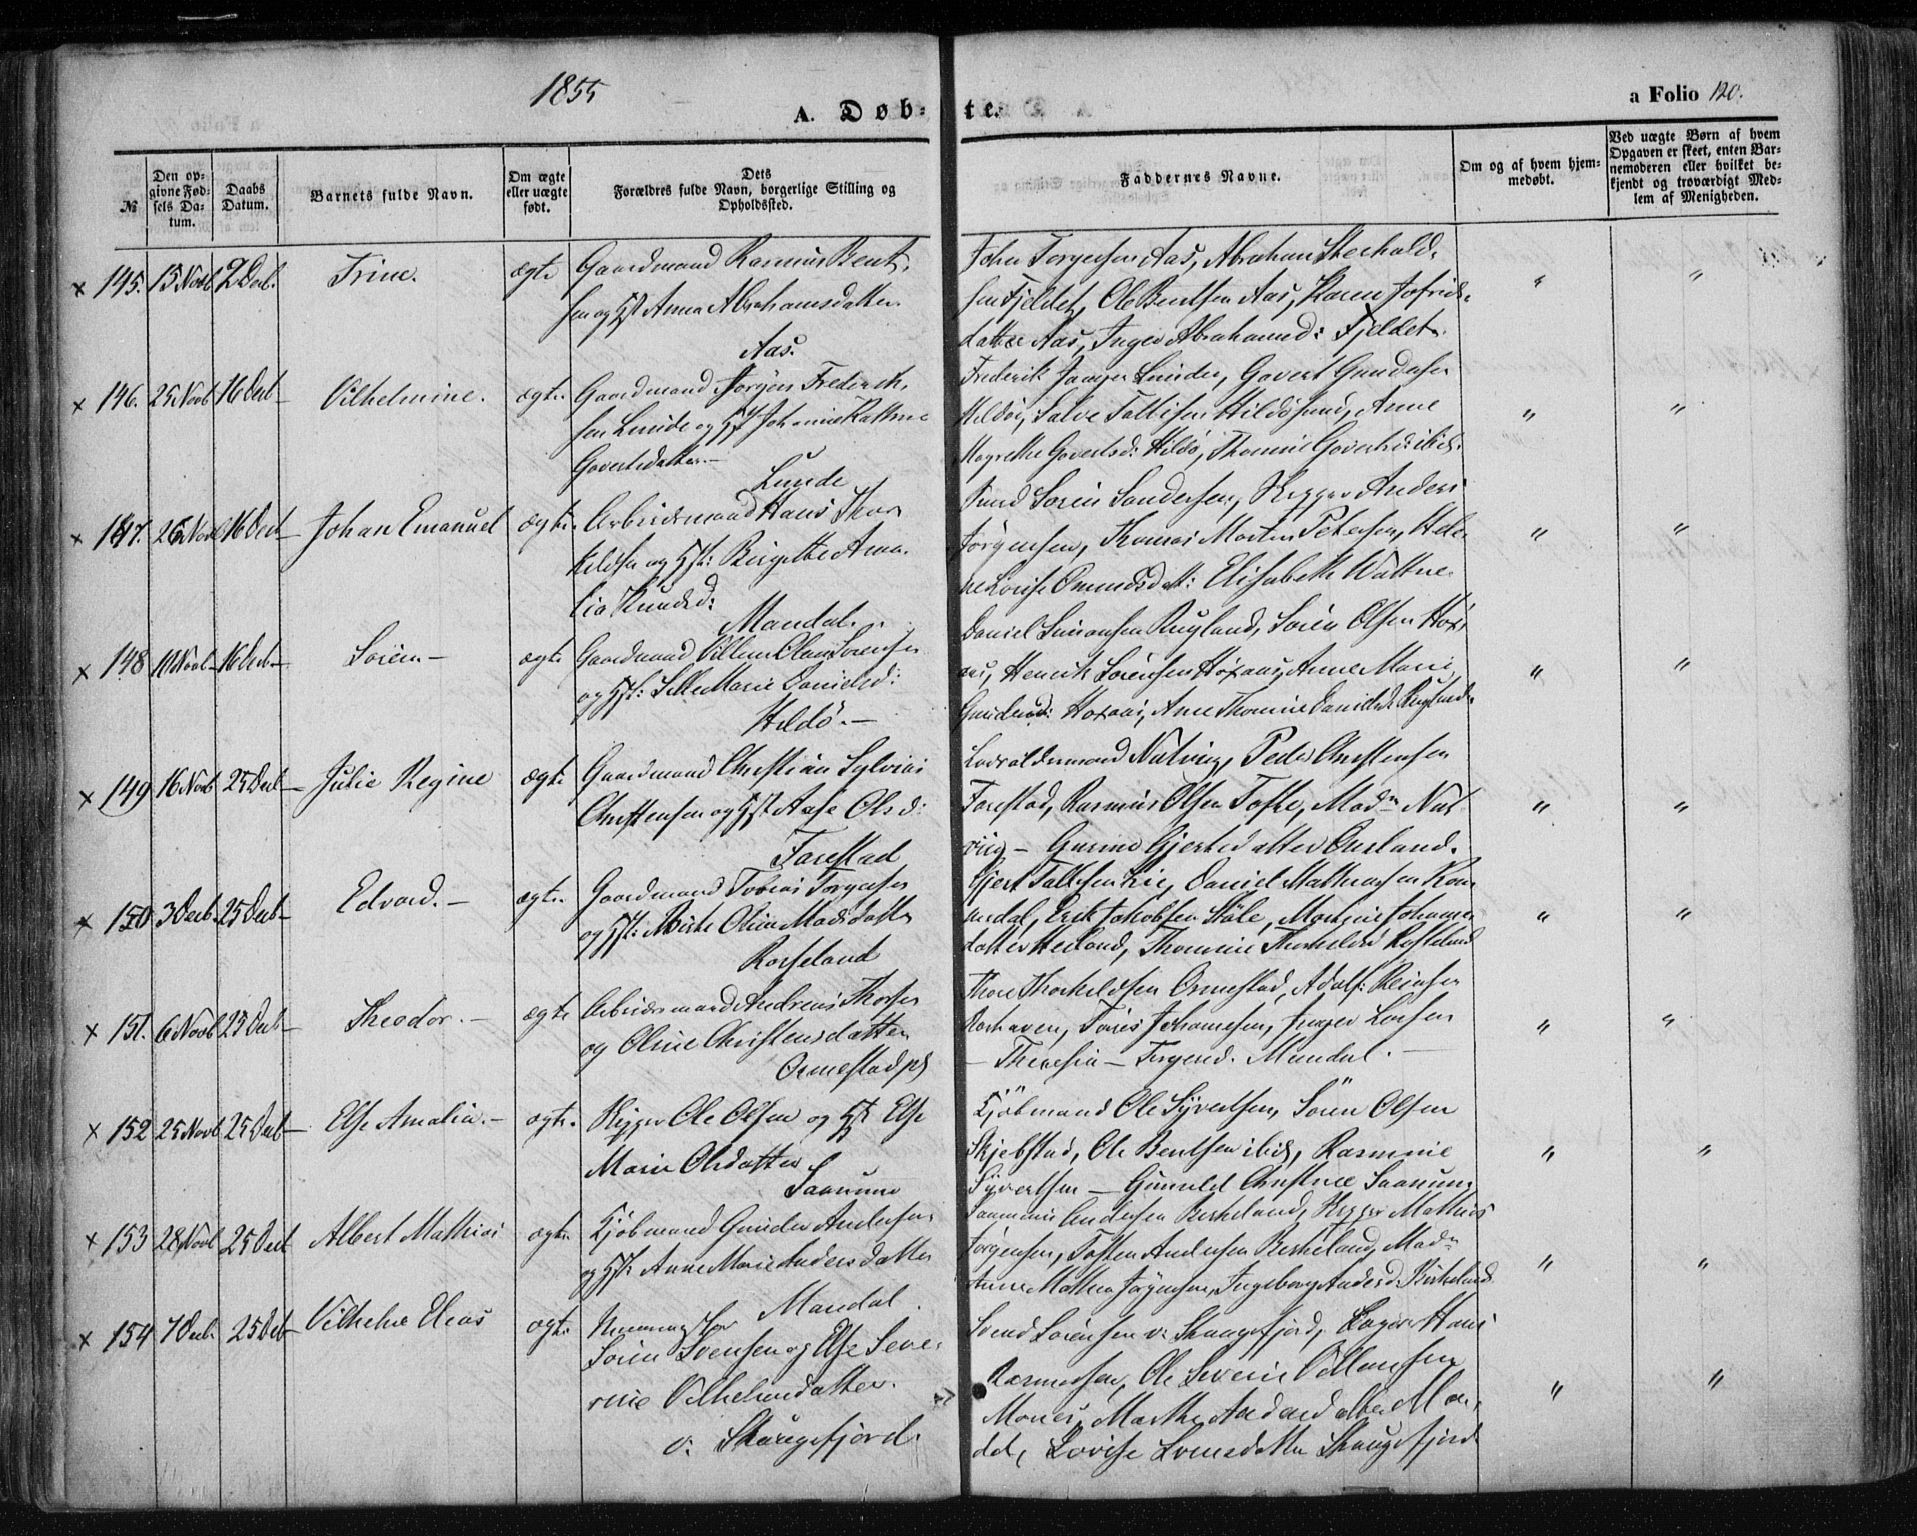 1855
a Folio 120.
A. Døb-
te.
№
Den op-
givne Fød-
sels Da-
tum.
Daabs
Datum.
Barnets fulde Navn.
Om ægte
eller uægte
født.
Dets
Forældres fulde Navn, borgerlige Stilling og
Opholdssted.
Faddernes Navne.
Om og af hvem hjem-
medøbt.
Ved uægte Børn af hvem
Opgaven er skeet, enten Bar-
nemoderen eller hvilket be-
kjendt og troværdigt Med-
lem af Menigheden.
× 145. 15 Novb 2 Decb. Trine. ægte Gaardmand Rasmus Bent-
sen og Hst Anna Abrahamsdatter
Aas.
sen Fjeldet, Ole Bentsen Aas, Karen Jofrids-
datter Aas, Inger Abrahamsd: Fjeldet.
" "
× 146. 25 Novb 16 Decb Vilhelmine. ægte Gaardmand Jørgen Frederik-
sen Lunde og Hst Johanne
Govertsdatter
Lunde
Frederik Lunde, Govert Gundersen
Hildø, Salve Tallisen Hildøsund, Anne
Magrethe Govertsd: Hildø, Thomine Govertsd: ibid:
" "
× 147. 26 Novb 16 Decb Johan Emanuel ægte Arbeidsmand Hans Thor-
kildsen og Hst: Birgithe Ama-
lia Knudsd:
Mandal.
Søren Sandersen, Rigger Anders
Jørgensen, Thomas Martin Petersen, Hele-
ne Lovise Omundsdatt: Elisabeth Wattne
" "
× 148 11 Novb 16 Decb Søren ægte Gaardmand Villum Olaus Sørensen
og Hst: Silla Marie Danielsd:
Hildø.
Daniel Simonsen Rugland, Søren Olsen Hox-
aas, Henrik Sørensen Høxaas, Anne Marie
Gundersd: Hoxaas, Ane Thomine Danielsd: Rugland
" "
× 149 16 Novb 25 Decb Julie Regine ægte Gaardmand Christian Sylvius
Christensen og Hst Aase Olsd:
Farestad
Lodsoldermand Nutviig, Peder Christensen
Farestad, Rasmus Olsen Tofte, Mad. Nut-
viig Gurine Gjertsdatter Ousland.
" "
× 150 3 Decb 25 Decb Edvard. ægte Gaardmand Tobias Torgersen
og Hst: Mirthe Oline Madsdatter
Rosseland
Gjert Tallesen Lie, Daniel Mathiasen Kom-
medal, Erik Jakobsen Ståle,
" "
× 151. 6 Novb 25 Decb Theodor. ægte Arbeidsmand Andreas Thorsen
og Oline Christensdatter
Ormestad
Thore Thorkildsen Ormestad, Adolf Reinsen
Johannesen, Inger Larsen
Theresia Torgersd. Mandal.
" "
× 152 25 Novb 25 Decb Else Amalia. ægte Rigger Ole Olsen og Hst Else
Marie Olsdatter
Saanum
Kjøbmand Ole Syvertsen, Søren Olsen
Skjebstad, Ole Bentsen ibid, Rasmine
Syvertsen Gunuld Christine Saanum
" "
× 153 28 Novb 25 Decb Albert Mathias ægte Kjøbmand Gunder Andersen
og Hst: Anne Marie Andersdatter
Mandal
Andersen Birkeland, Rigger Mathias
Jørgensen, Tosten Andersen Birkeland, Mad.
Anne Mathea Jørgensen, Ingeborg Andersd. Birkeland
" "
× 154 7 Decb 25 Decb Vilhelm Elias ægte
Søren Svensen og Else Seve-
rine Vilhelmsdatter.
v: Skougefjord.
Svend Sørensen v: Skougefjord, Hans
Rasmussen, Ole Severin Villumsen
Marthe Man-
dal, Lovise Svensdatter Skougefjord
" "